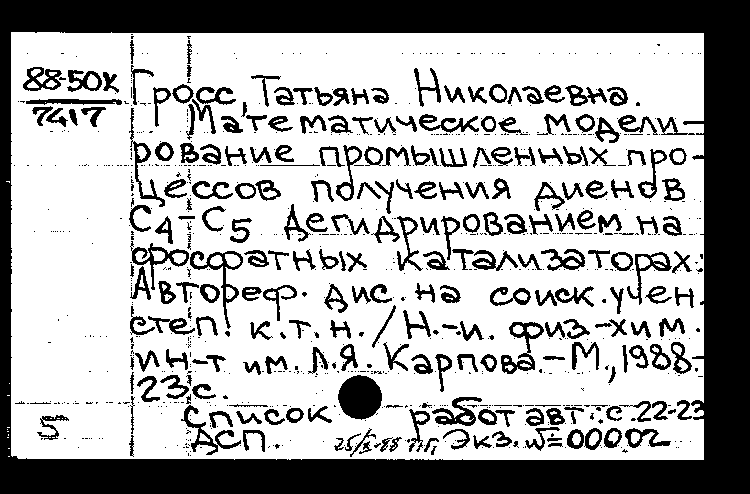 88-50К
7417
Гросс, Татьяна Николаевна.
Математическое модели-
рование промышленных про-
цессов получения диенов
С4-С5 дегидрированием на
фосфатных катализаторах:
Автореф. дис. на соиск. учен.
степ. к.т.н. / Н.-и. физ-хим.
ин-т им. Л.Я. Карпова. - М., 1988.-
23с.
Список работ авт.: с. 22-23
5
ДСП. 25/X-88 Экз. №=00002